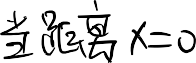 当距离 x=0